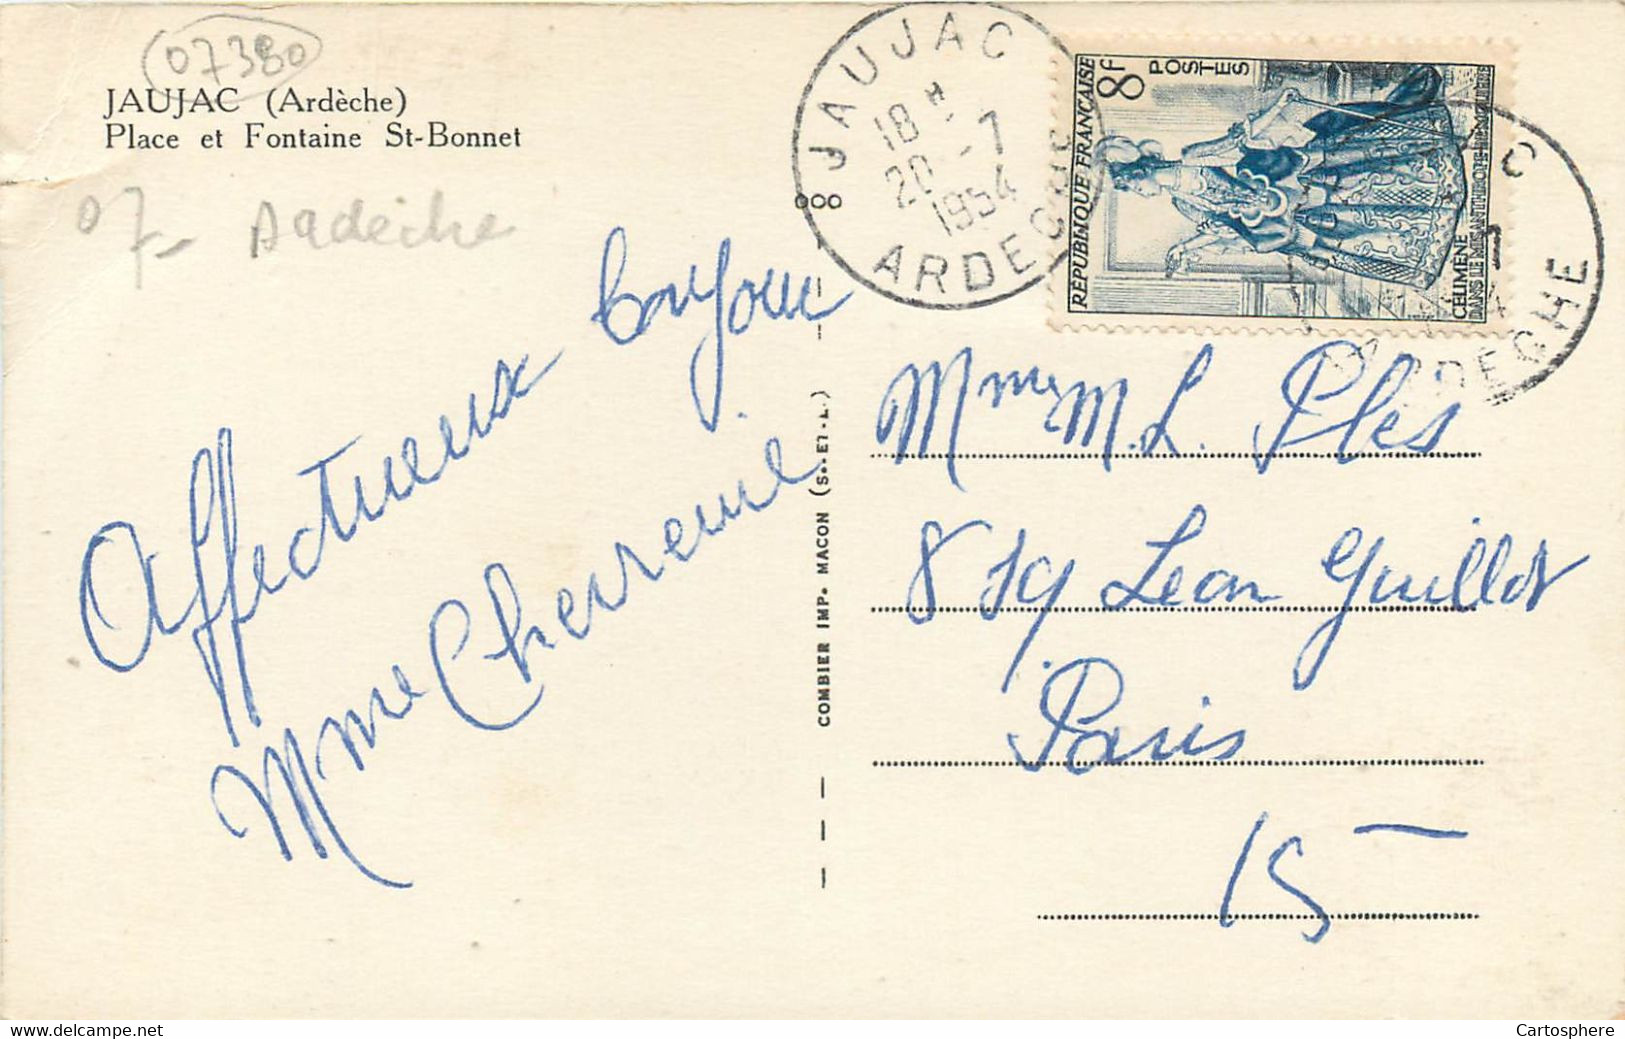 07380
JAUJAC (Ardèche)
Place et Fontaine St-Bonnet
07- Ardèche
Affectueux bonjour
Mme Chevreuil
COMBIER IMP. MACON (S.-ET-L.)
JAUJAC
18 H
20 -7
1954
ARDECHE
RÉPUBLIQUE FRANÇAISE
8f
POSTES
CÉLIMÈNE
DANS LE MISANTHROPE DE MOLIÈRE
ARDECHE
Mme M. L. Ples
8 sq Leon Guillot
Paris
15
www.delcampe.net
Cartosphere